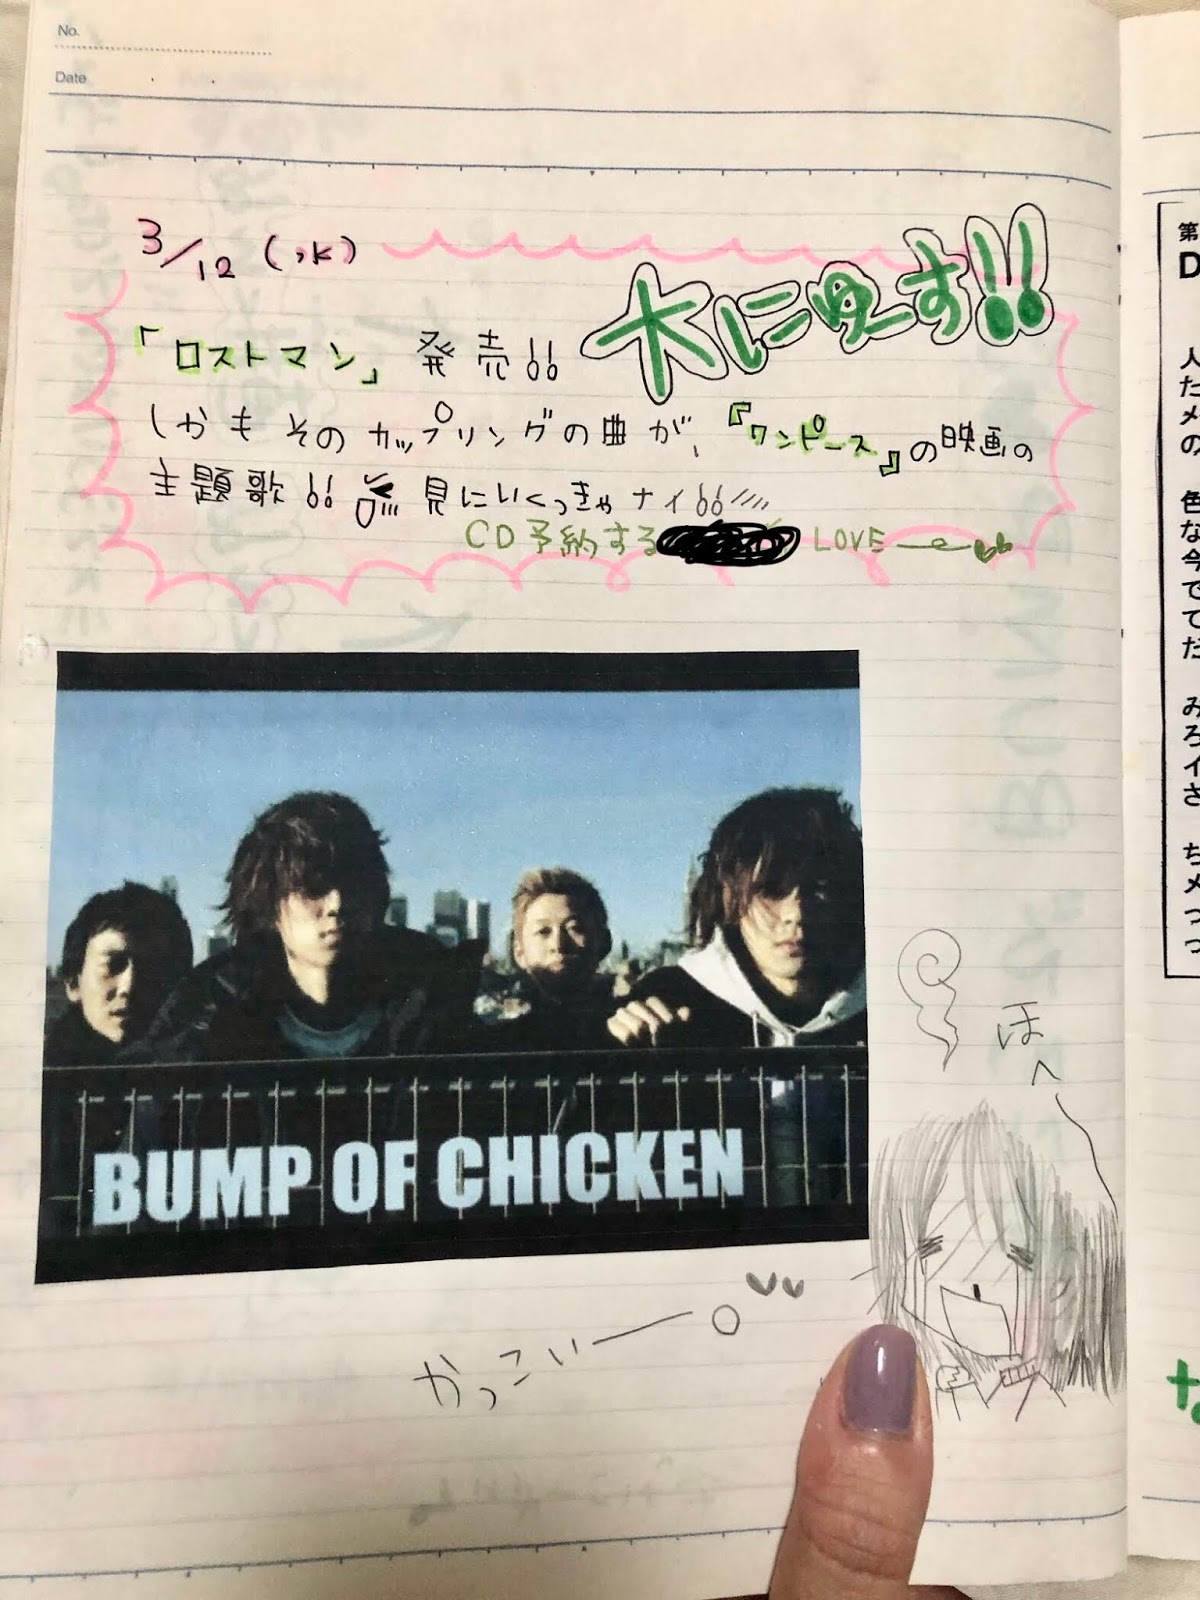 No.
Date
3/12 (水)
大にゅーす!!
「ロストマン」発売!!
しかもそのカップリングの曲が、『ワンピース』の映画の
主題歌!! 見にいくっきゃナイ!!
CD予約する LOVE
BUMP OF CHICKEN
ほへ
かっこいー。
第
D
人
た
メ
の
色
な
今
で
て
だ
み
ろ
イ
さ
ち
メ
っ
つ